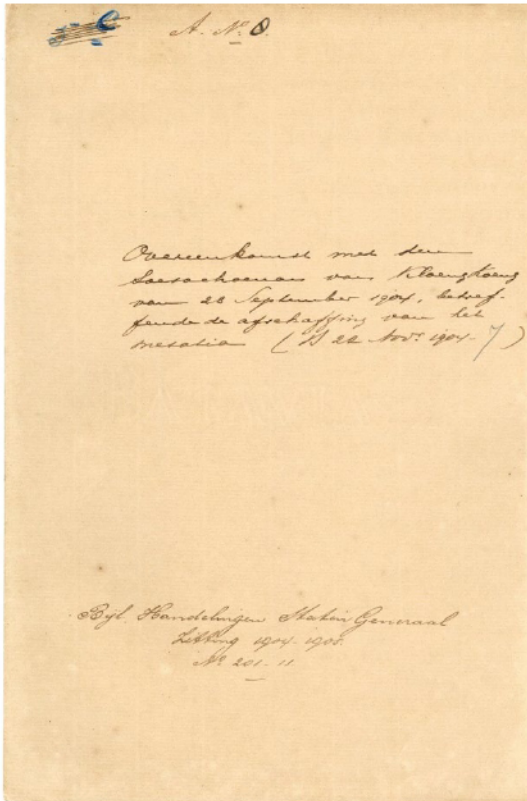 A. No. 8.
Overeenkomst met den
Soesoehoenan van Kloengkoeng
van 28 September 1904, betref-
fende de afschaffing van het
mesatia (B 22 Nov: 1904 - 7)
Bijl. Handelingen Staten Generaal
Zitting 1904-1905.
No 201-11